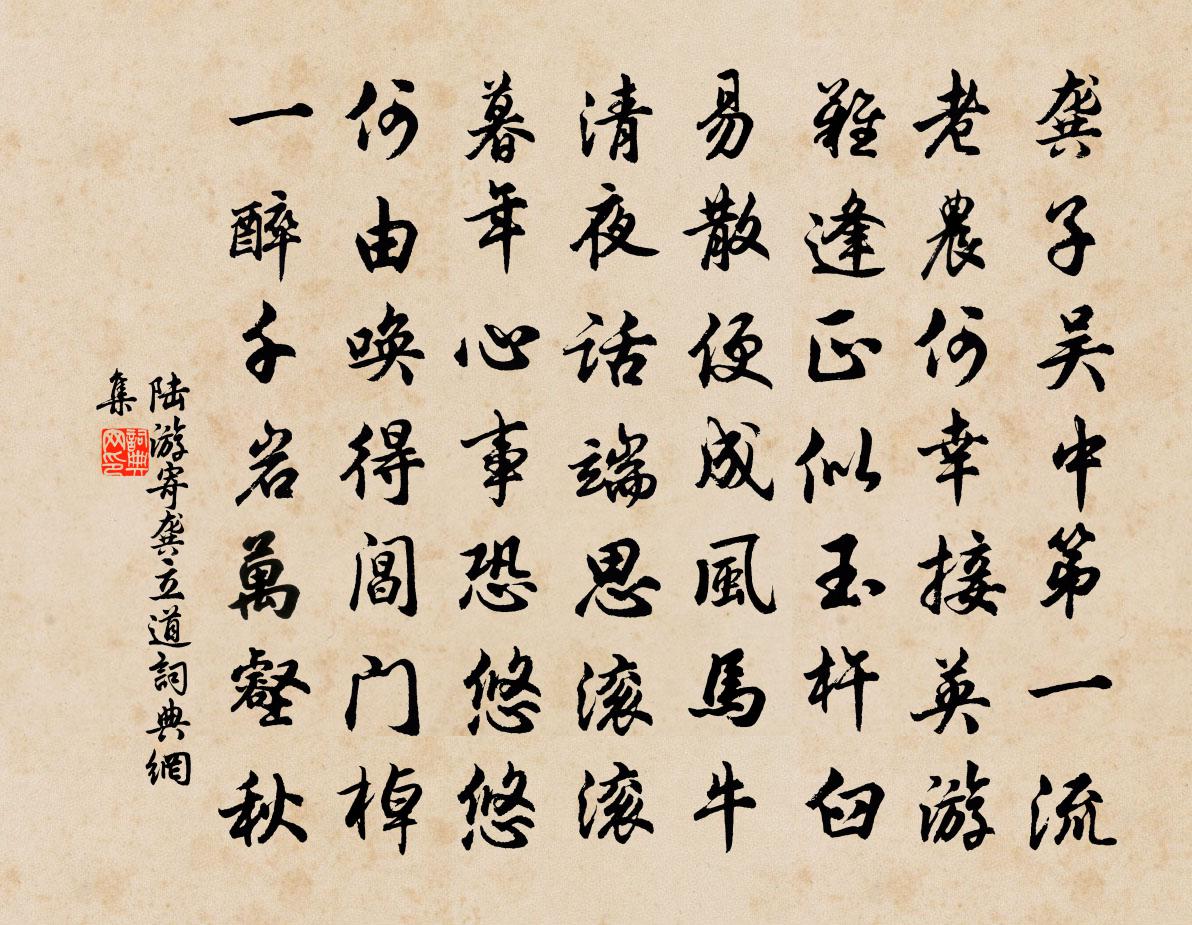 龚子吴中第一流
老農何幸接英游
難逢正似玉杵臼
易散便成風馬牛
清夜話端思滚滚
暮年心事恐悠悠
何由唤得閶门棹
一醉千岩萬壑秋
陆游寄龚立道詞典網
集
詞典网印